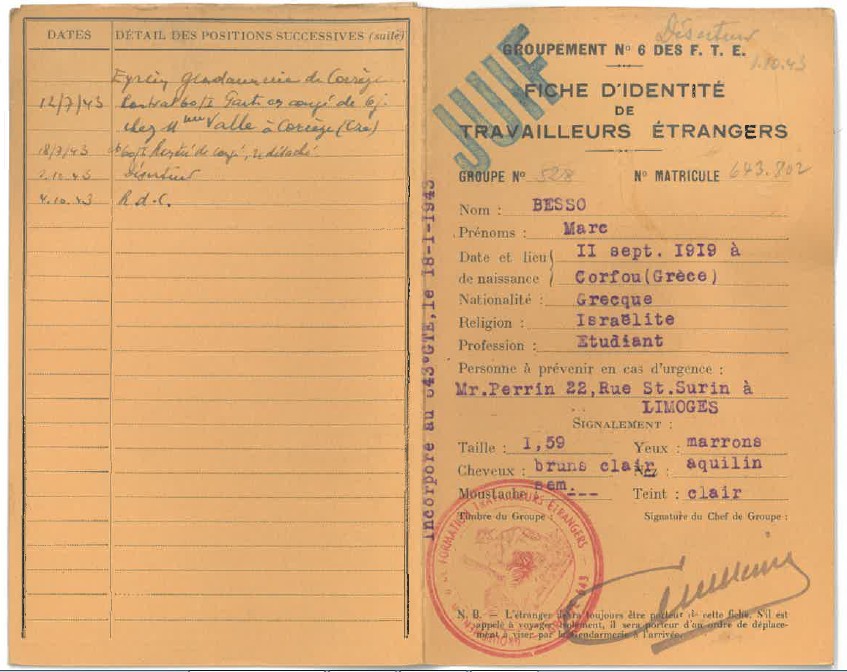 DATES
DÉTAIL DES POSITIONS SUCCESSIVES (suite)
gendarmerie de Corrèze
12/7/43
congé de 6 j.
chez Mme Valle à Corrèze (Cze)
18/7/43
de congé, redétaché
2.10.43 déserteur
4.10.43 R.d.C.
Déserteur
1.10.43
JUIF
GROUPEMENT No 6 DES F. T. E.
FICHE D'IDENTITÉ
DE
TRAVAILLEURS ÉTRANGERS
GROUPE No No MATRICULE 643.802
Nom : BESSO
Prénoms : Marc
Date et lieu II sept. I9I9 à
de naissance Corfou(Grèce)
Nationalité : Grecque
Religion : Israëlite
Profession : Etudiant
Personne à prévenir en cas d'urgence :
Mr.Perrin 22,Rue St.Surin à
LIMOGES
SIGNALEMENT :
Taille : 1,59 Yeux : marrons
Cheveux : bruns clair Nez : aquilin
Moustache sem. --- Teint : clair
Timbre du Groupe : Signature du Chef de Groupe :
N. B. — L'étranger devra toujours être porteur de cette fiche. S'il est
appelé à voyager isolément, il sera porteur d'un ordre de déplace-
ment à viser par la Gendarmerie à l'arrivée.
incorporé au 643°GTE, le 18-1-1943
FORMATION TRAVAILLEURS ÉTRANGERS
643